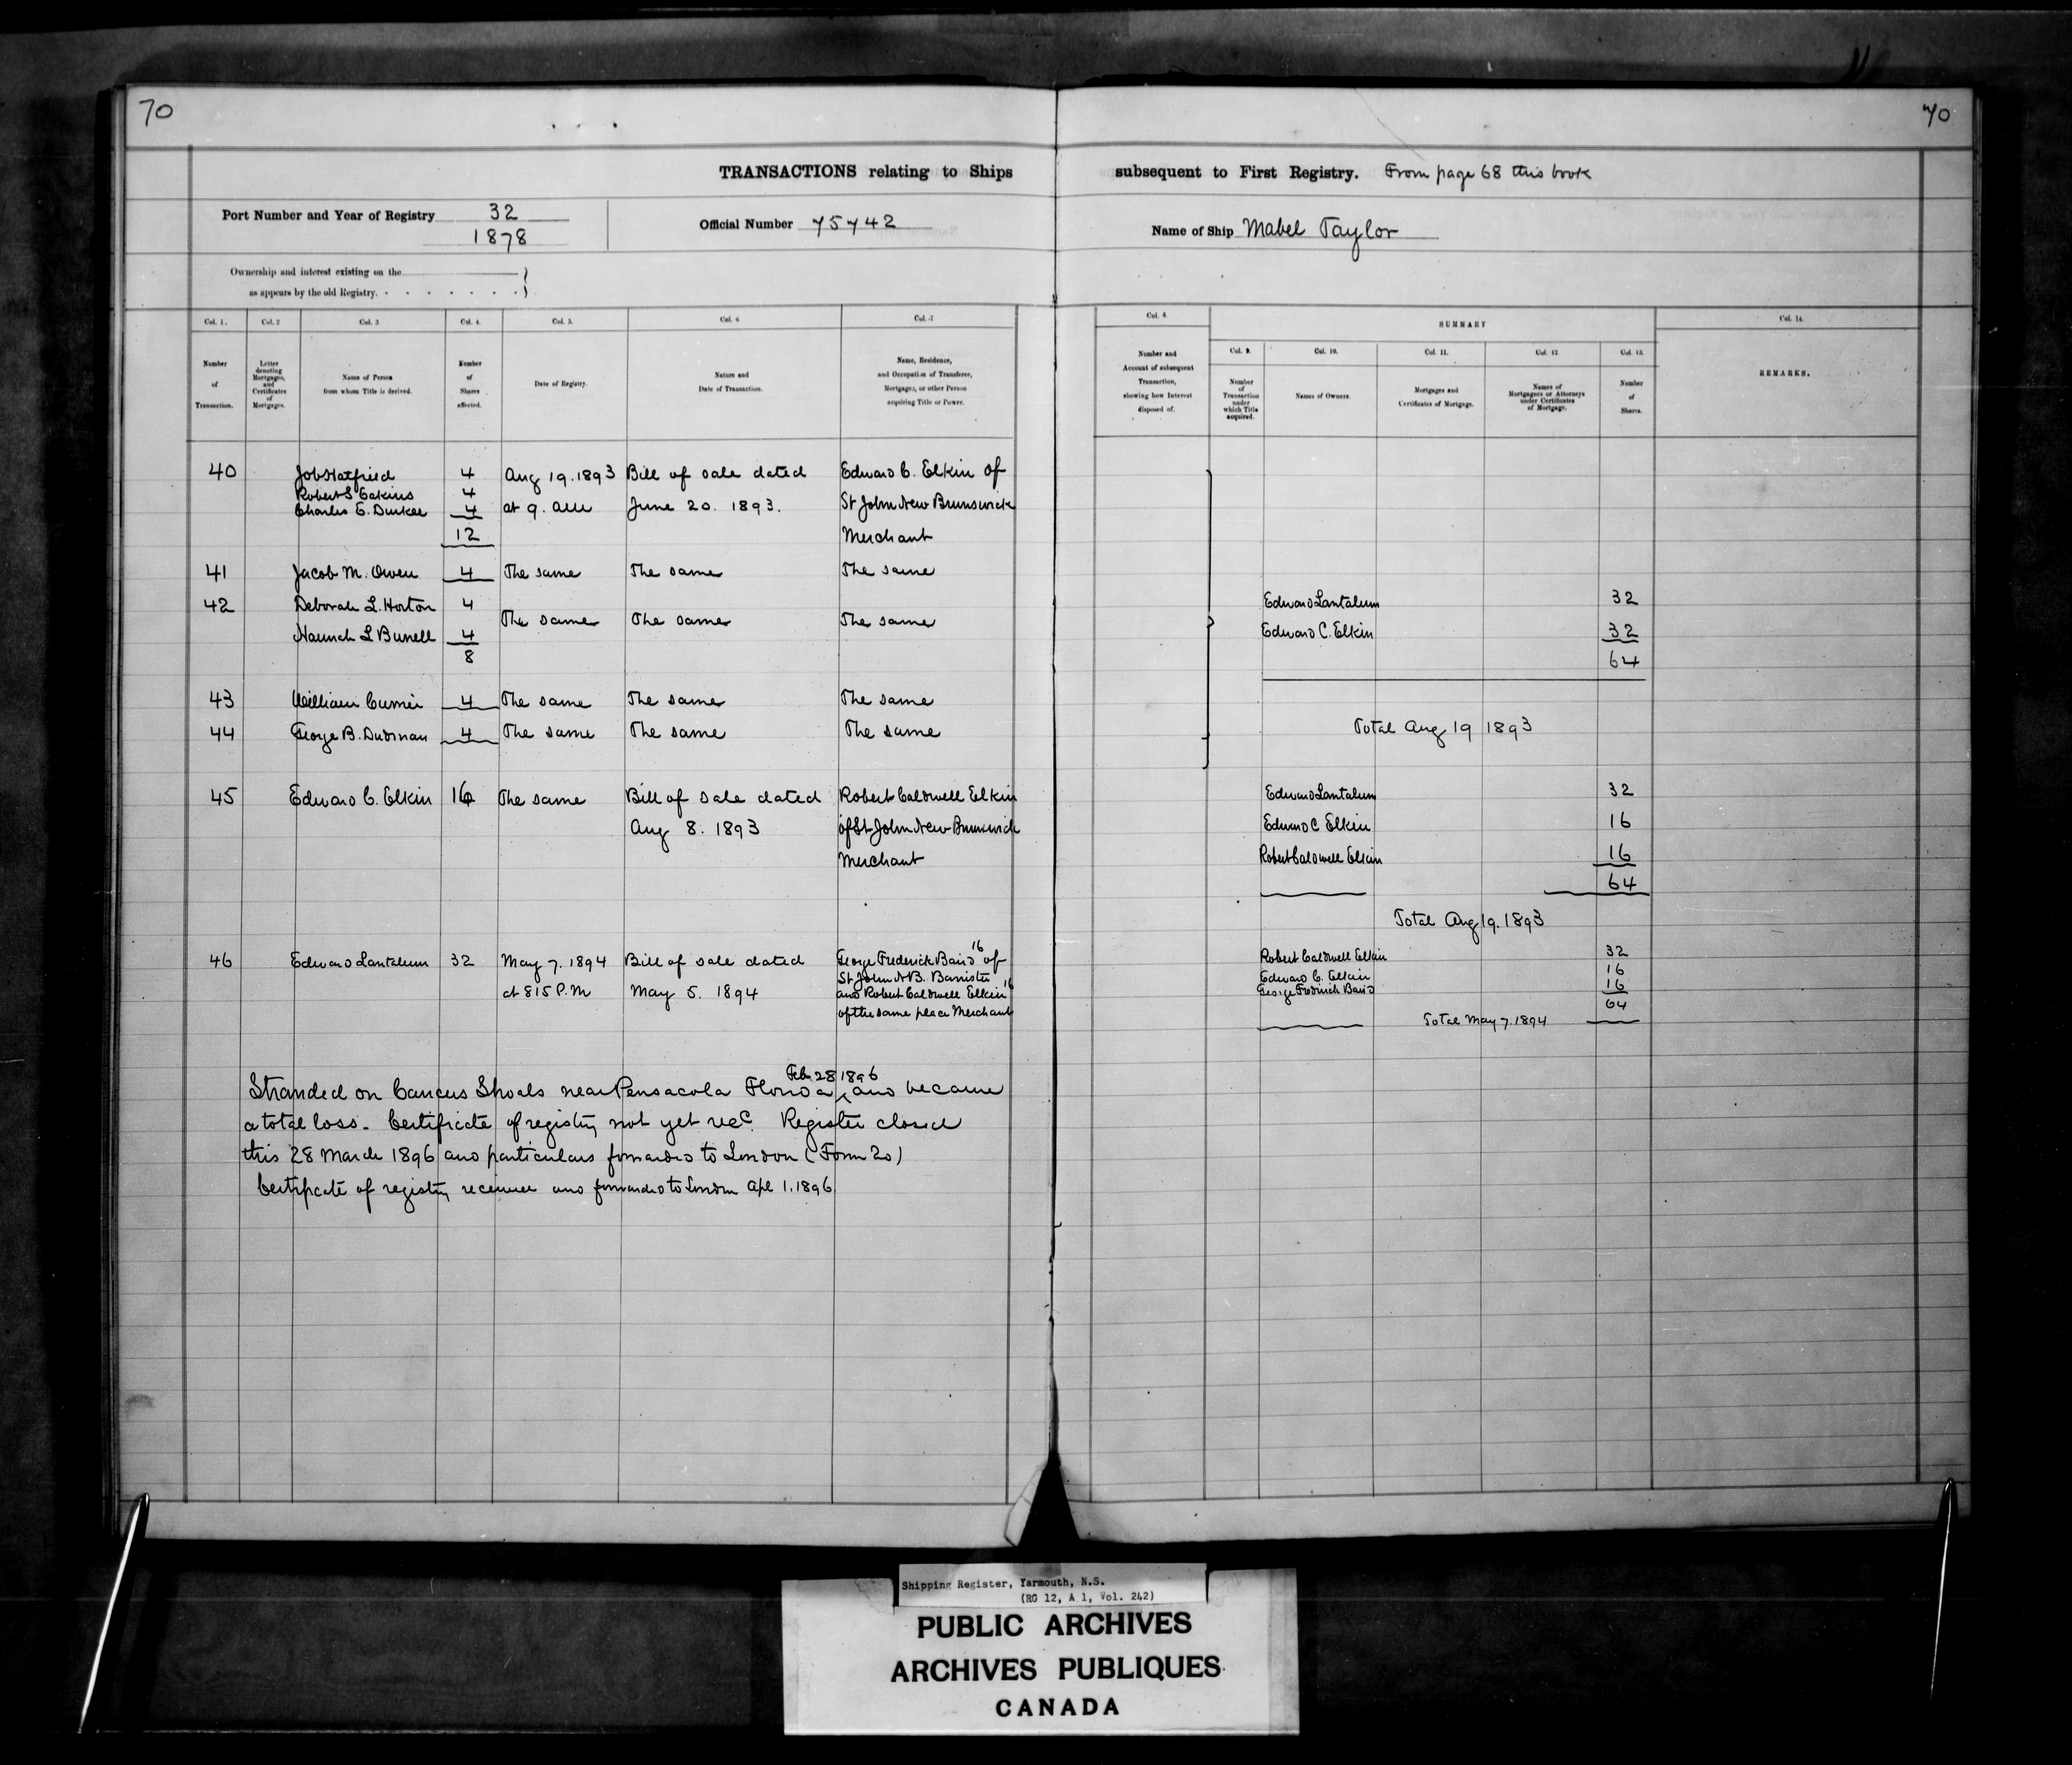 70
70
TRANSACTIONS relating to Ships
subsequent to First Registry. From page 68 this book
Port Number and Year of Registry 32
1878
Official Number 75742
Name of Ship Mabel Taylor
Ownership and interest existing on the
as appears by the old Registry.
Col. 1. Col. 2 Col. 3 Col. 4. Col. 5. Col. 6 Col. 7
Number of Transaction.
Letter denoting Mortgages, and Certificates of Mortgages.
Name of Person from whom Title is derived.
Number of Shares affected.
Date of Registry.
Nature and Date of Transaction.
Name, Residence, and Occupation of Transferee, Mortgagee, or other Person acquiring Title or Power.
Col. 8. SUMMARY Col. 14.
Col. 9. Col. 10. Col. 11. Col. 12 Col. 13.
Number and Account of subsequent Transaction, showing how Interest disposed of.
Number of Transaction under which Title acquired.
Names of Owners.
Mortgages and Certificates of Mortgage.
Names of Mortgagees or Attorneys under Certificates of Mortgage.
Number of Shares.
REMARKS.
40 Job Hatfield 4 Aug 19. 1893 Bill of sale dated Edward C. Elkin of
Robert S Eakins 4
Charles E. Durkee 4 at 9. am June 20. 1893. St John New Brunswick
12 Merchant
41 Jacob M. Owen 4 The same The same The same
42 Deborah L. Horton 4
The same The same The same
Hannah L Bunell 4
8
43 William Currier 4 The same The same The same
44 George B. Dudman 4 The same The same The same
45 Edward C. Elkin 16 The same Bill of sale dated Robert Caldwell Elkin
Aug 8. 1893 of St John New Brunswick
Merchant
46 Edward Lantalum 32 May 7. 1894 Bill of sale dated George Frederick Baird 16 of
St John N.B. Barrister
at 815 P.M May 5. 1894 and Robert Caldwell Elkin 16
of the same place Merchant
Edward Lantalum 32
Edward C. Elkin 32
64
Total Aug 19 1893
Edward Lantalum 32
Edward C Elkin 16
Robert Caldwell Elkin 16
64
Total Aug 19. 1893
Robert Caldwell Elkin 32
Edward C. Elkin 16
George Fredrick Baird 16
64
Total May 7. 1894
Feb 28 1896
Stranded on Caucus Shoals near Pensacola Florida and became
a total loss. Certificate of registry not yet recd. Register closed
this 28 March 1896 and particulars forwarded to London (Form 20)
Certificate of registry received and forwarded to London Apl 1. 1896
Shipping Register, Yarmouth, N.S.
(RG 12, A 1, Vol. 242)
PUBLIC ARCHIVES
ARCHIVES PUBLIQUES
CANADA